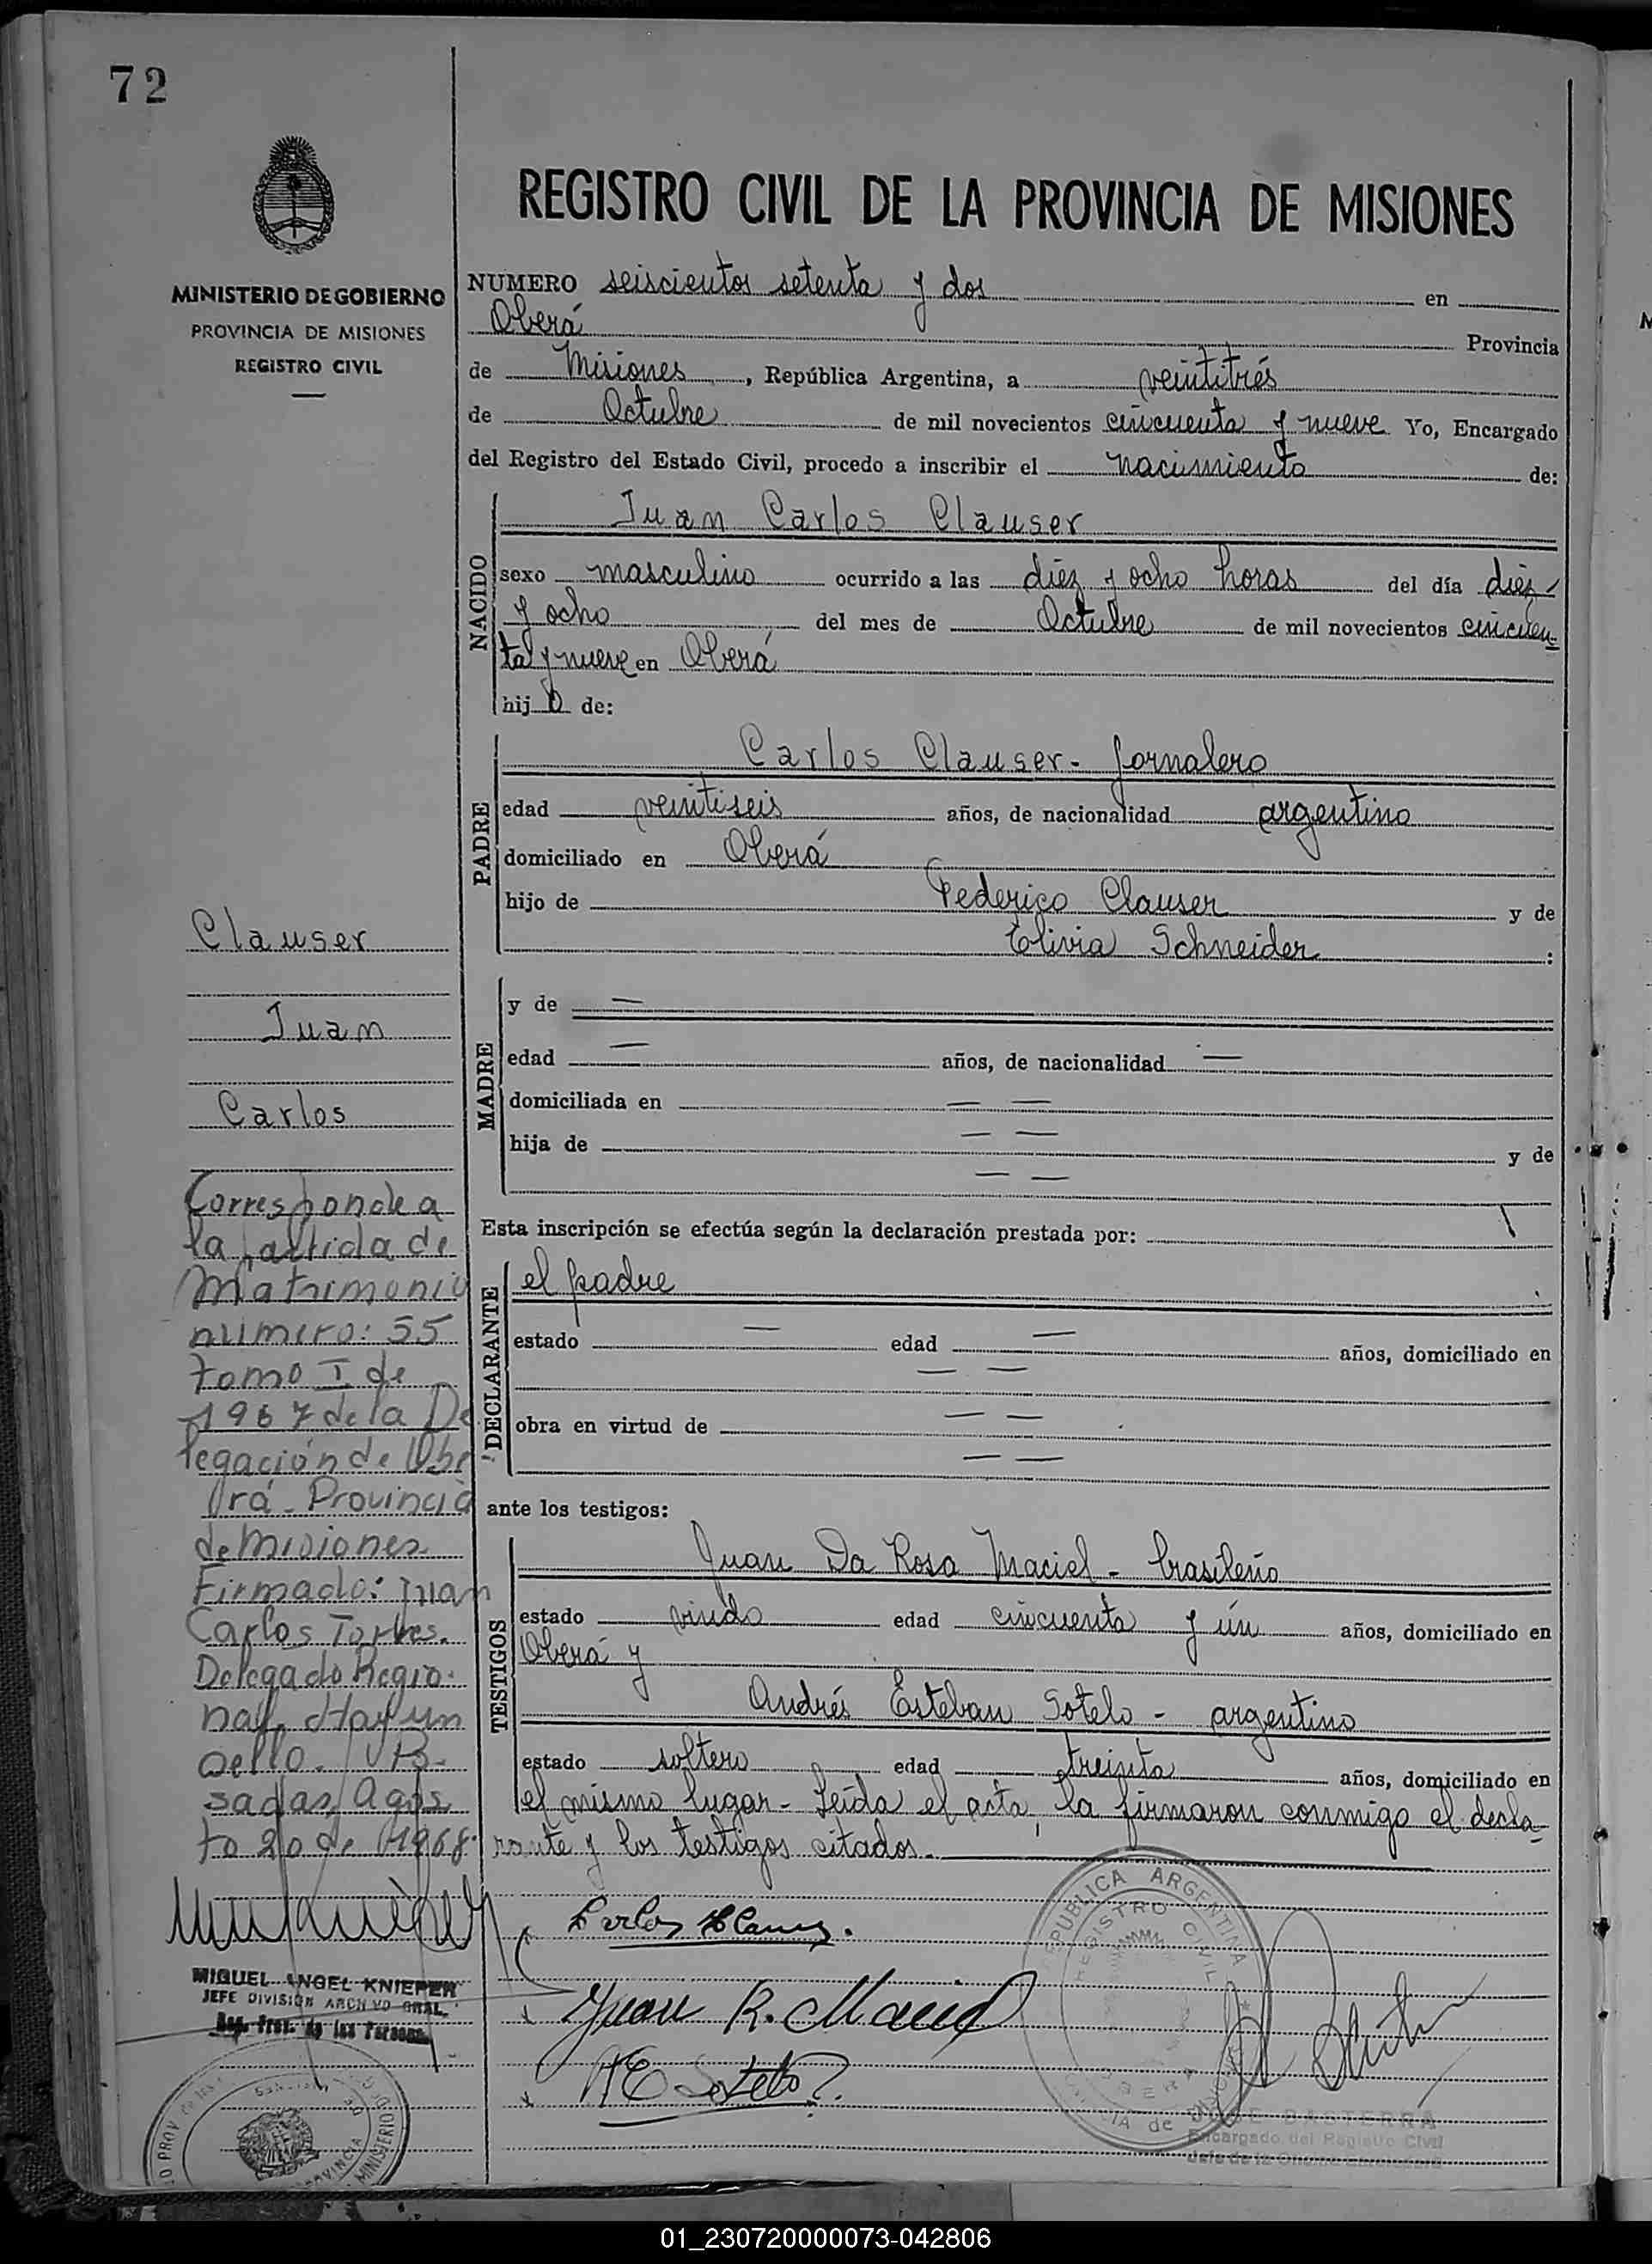 72
MINISTERIO DE GOBIERNO
PROVINCIA DE MISIONES
REGISTRO CIVIL
REGISTRO CIVIL DE LA PROVINCIA DE MISIONES
NUMERO seiscientos setenta y dos en
Oberá Provincia
de Misiones, República Argentina, a veintitrés
de Octubre de mil novecientos cincuenta y nueve Yo, Encargado
del Registro del Estado Civil, procedo a inscribir el nacimiento de:
NACIDO
Juan Carlos Clauser
sexo masculino ocurrido a las diez y ocho horas del día diez
y ocho del mes de Octubre de mil novecientos cincuen-
ta y nueve en Oberá
hijo de:
PADRE
Carlos Clauser - Jornalero
edad veintiseis años, de nacionalidad argentino
domiciliado en Oberá
hijo de Federico Clauser y de
Elivia Schneider :
MADRE
y de —
edad — años, de nacionalidad —
domiciliada en — —
hija de — — y de
— —
Esta inscripción se efectúa según la declaración prestada por:
DECLARANTE
el padre
estado — edad — años, domiciliado en
— —
obra en virtud de — —
— —
ante los testigos:
TESTIGOS
Juan Da Rosa Maciel - brasileño
estado viudo edad cincuenta y ún años, domiciliado en
Oberá y
Andrés Esteban Sotelo - argentino
estado soltero edad treinta años, domiciliado en
el mismo lugar - Leída el acta, la firmaron conmigo el decla-
rante y los testigos citados.
Carlos Clauser.
Juan R. Maciel
A E Sotelo
REPUBLICA ARGENTINA
REGISTRO CIVIL
OBERA
PROVINCIA de MISIONES
JOSE BASTERRA
Encargado del Registro Civil
Jefe de la Oficina
Clauser
Juan
Carlos
Corresponde a
la partida de
Matrimonio
número: 55
tomo I de
1967 de la De
legación de Obe
rá - Provincia
de Misiones
Firmado: Juan
Carlos Torres.
Delegado Regio-
nal. Hay un
sello.
sadas, Agos
to 20 de 1968.
MIGUEL ANGEL KNIEPER
JEFE DIVISIÓN ARCHIVO GRAL.
Reg. Prov. de las Personas
MINISTERIO
PROVINCIA
01_230720000073-042806